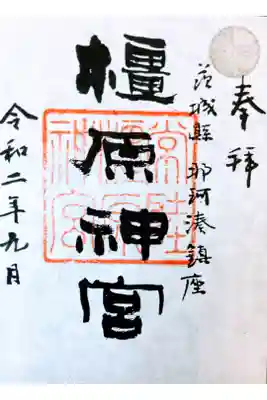 奉拝
茨城縣 那珂湊鎮座
橿原神宮
令和二年九月